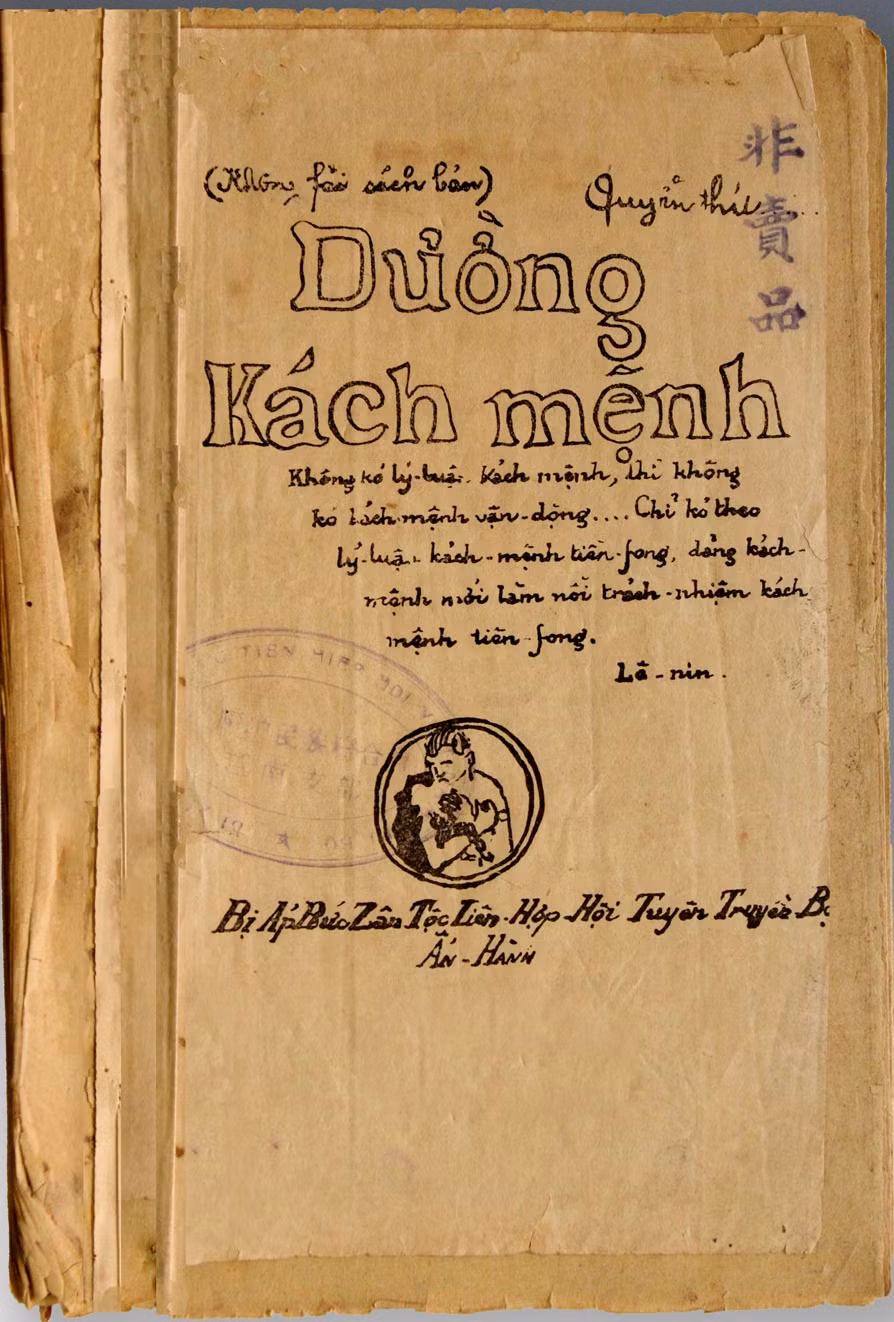 (Không fải sách bán)
Quyển thứ.....
非
賣
品
Đường
Kách mệnh
Không kó lý-luận kách mệnh, thì không
kó kách mệnh vận-động.... Chỉ kó theo
lý-luận kách-mệnh tiền-fong, đảng kách-
mệnh mới làm nổi trách-nhiệm kách
mệnh tiền-fong.
Lê-nin.
Bị Áp Bức Zân Tộc Liên-Hợp-Hội Tuyên Truyền Bộ
Ấn-Hành